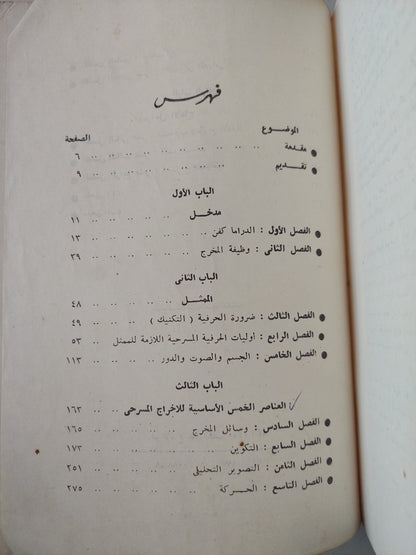 فهرس
الموضوع الصفحة
مقدمة .. .. .. .. .. .. .. .. ٦
تقديم .. .. .. .. .. .. .. ٩
الباب الأول
مدخل .. .. .. .. .. ١١
الفصل الأول : الدراما كفن .. .. .. .. .. ١٣
الفصل الثانى : وظيفة المخرج .. .. .. .. ٣٩
الباب الثانى
الممثل .. .. .. .. .. ٤٨
الفصل الثالث : ضرورة الحرفية ( التكنيك ) .. .. .. ٤٩
الفصل الرابع : أوليات الحرفية المسرحية اللازمة للممثل .. ٥٣
الفصل الخامس : الجسم والصوت والدور .. .. .. ١١٣
الباب الثالث
العناصر الخمس الأساسية للاخراج المسرحى .. .. ١٦٣
الفصل السادس : وسائل المخرج .. .. .. .. ١٦٥
الفصل السابع : التكوين .. .. .. .. .. .. ١٧٣
الفصل الثامن : التصوير التخيلى .. .. .. .. ٢٥١
الفصل التاسع : الحركة .. .. .. .. .. ٢٧٥